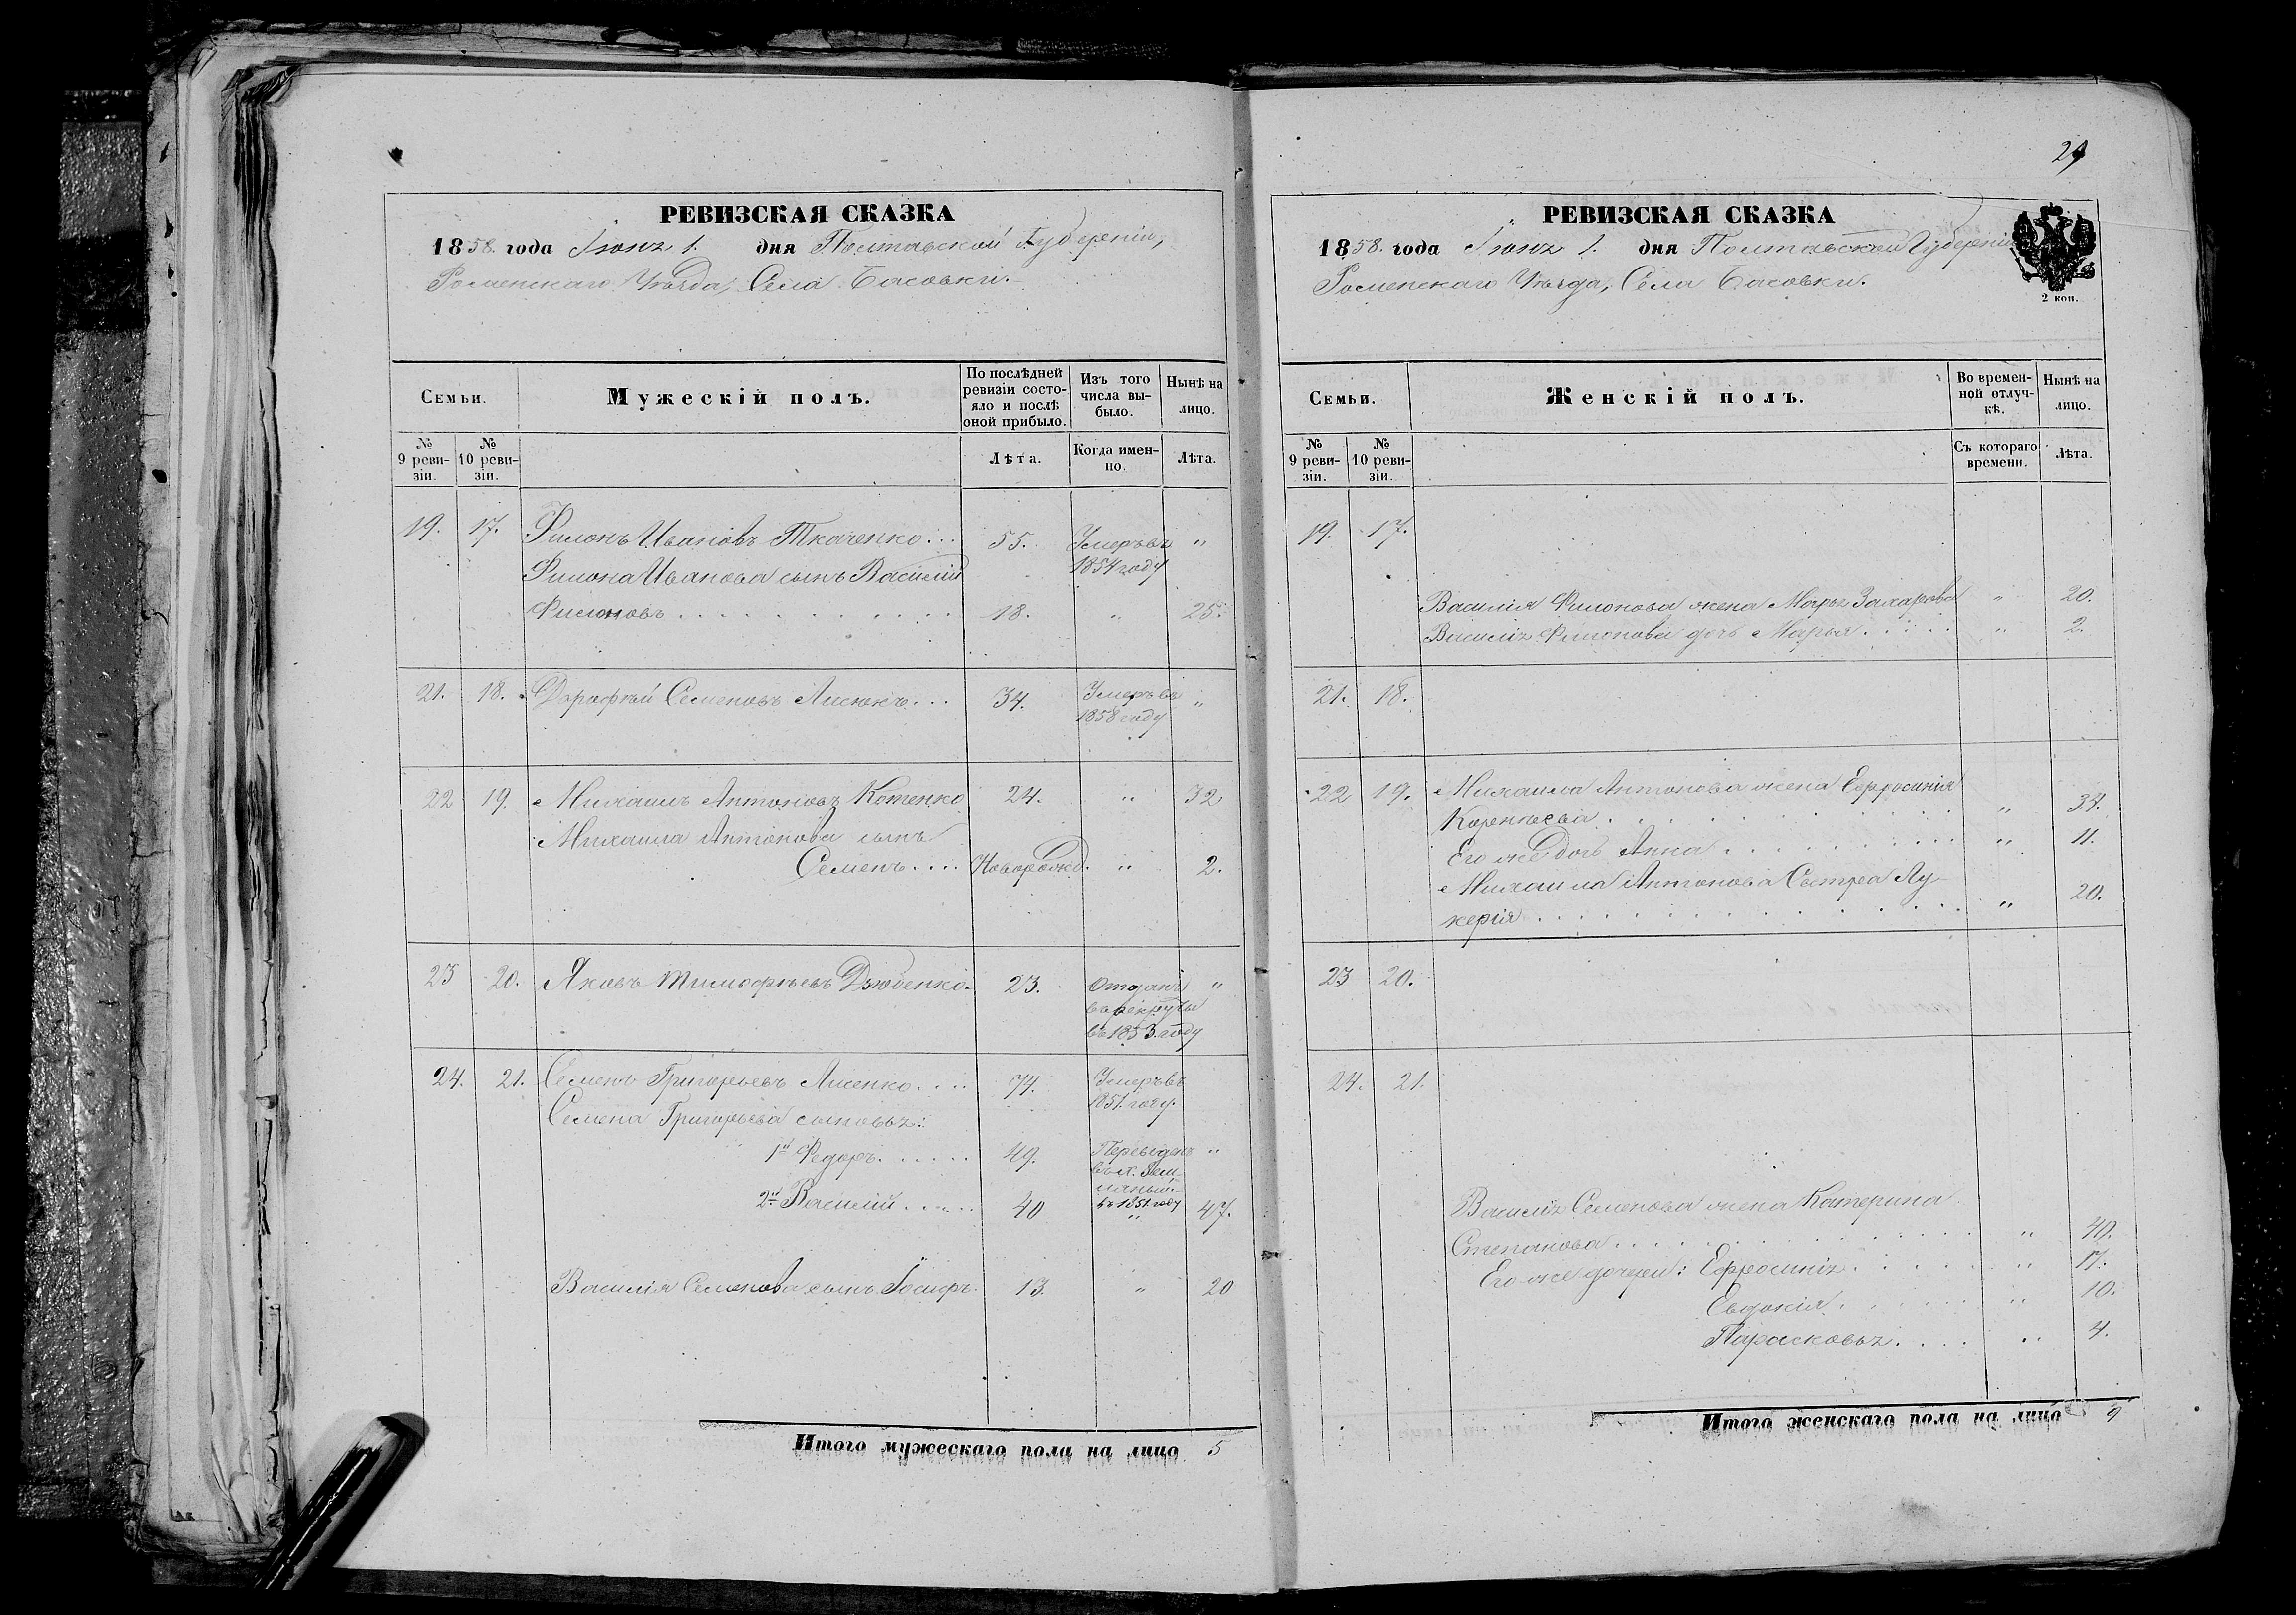 РЕВИЗСКАЯ СКАЗКА
1858. года Іюня 1. дня Полтавской Губерніи,
Роменскаго Уѣзда, Села Басовки.
Семьи.
Мужескій полъ.
По послѣдней ревизіи состояло и послѣ оной прибыло.
Изъ того числа выбыло.
Нынѣ на лицо.
№ 9 ревизіи.
№ 10 ревизіи.
Лѣта.
Когда именно.
Лѣта.
19. 17. Филонъ Ивановъ Ткаченко... 55. Умеръ въ "
Филона Иванова сынъ Василій 1854 году
Филоновъ 18. " 25.
21. 18. Дорофѣй Семеновъ Лисенко... 34. Умеръ въ "
1858 году
22 19. Михаилъ Антоновъ Котенко 24. " 32
Михаила Антонова сынъ
Семенъ.... Новорожд. " 2.
23 20. Яковъ Тимофѣевъ Дзюбенко. 23. Отданъ "
въ рекруты
въ 1853 году
24. 21. Семенъ Григорьевъ Лисенко.... 74. Умеръ въ
1851. году.
Семена Григорьева сыновья:
1й Федоръ...... 49. Переведенъ "
въ 1851. году
2й Василій..... 40 " 47.
Василія Семенова сынъ Іосифъ. 13. " 20
Итого мужескаго пола на лицо 5
29
РЕВИЗСКАЯ СКАЗКА
1858. года Іюня 1. дня Полтавской Губерніи
Роменскаго Уѣзда, Села Басовки.
2 коп.
Семьи.
Женскій полъ.
Во временной отлучкѣ.
Нынѣ на лицо.
№ 9 ревизіи.
№ 10 ревизіи.
Съ котораго времени.
Лѣта.
19. 17.
Василія Филонова жена Марья Захарова " 20.
Василія Филонова дочь Марья..... " 2.
21. 18.
22 19. Михаила Антонова жена Ефросинія
Корнѣева "
Его же дочь Анна " 11.
Михаила Антонова Сестра Лу-
керія " 20.
23 20.
24. 21.
Василія Семенова жена Катерина
Степанова "
Его же дочери: Ефросинія " 17.
Евдокія " 10.
Парасковья.... " 4.
Итого женскаго пола на лицо 9